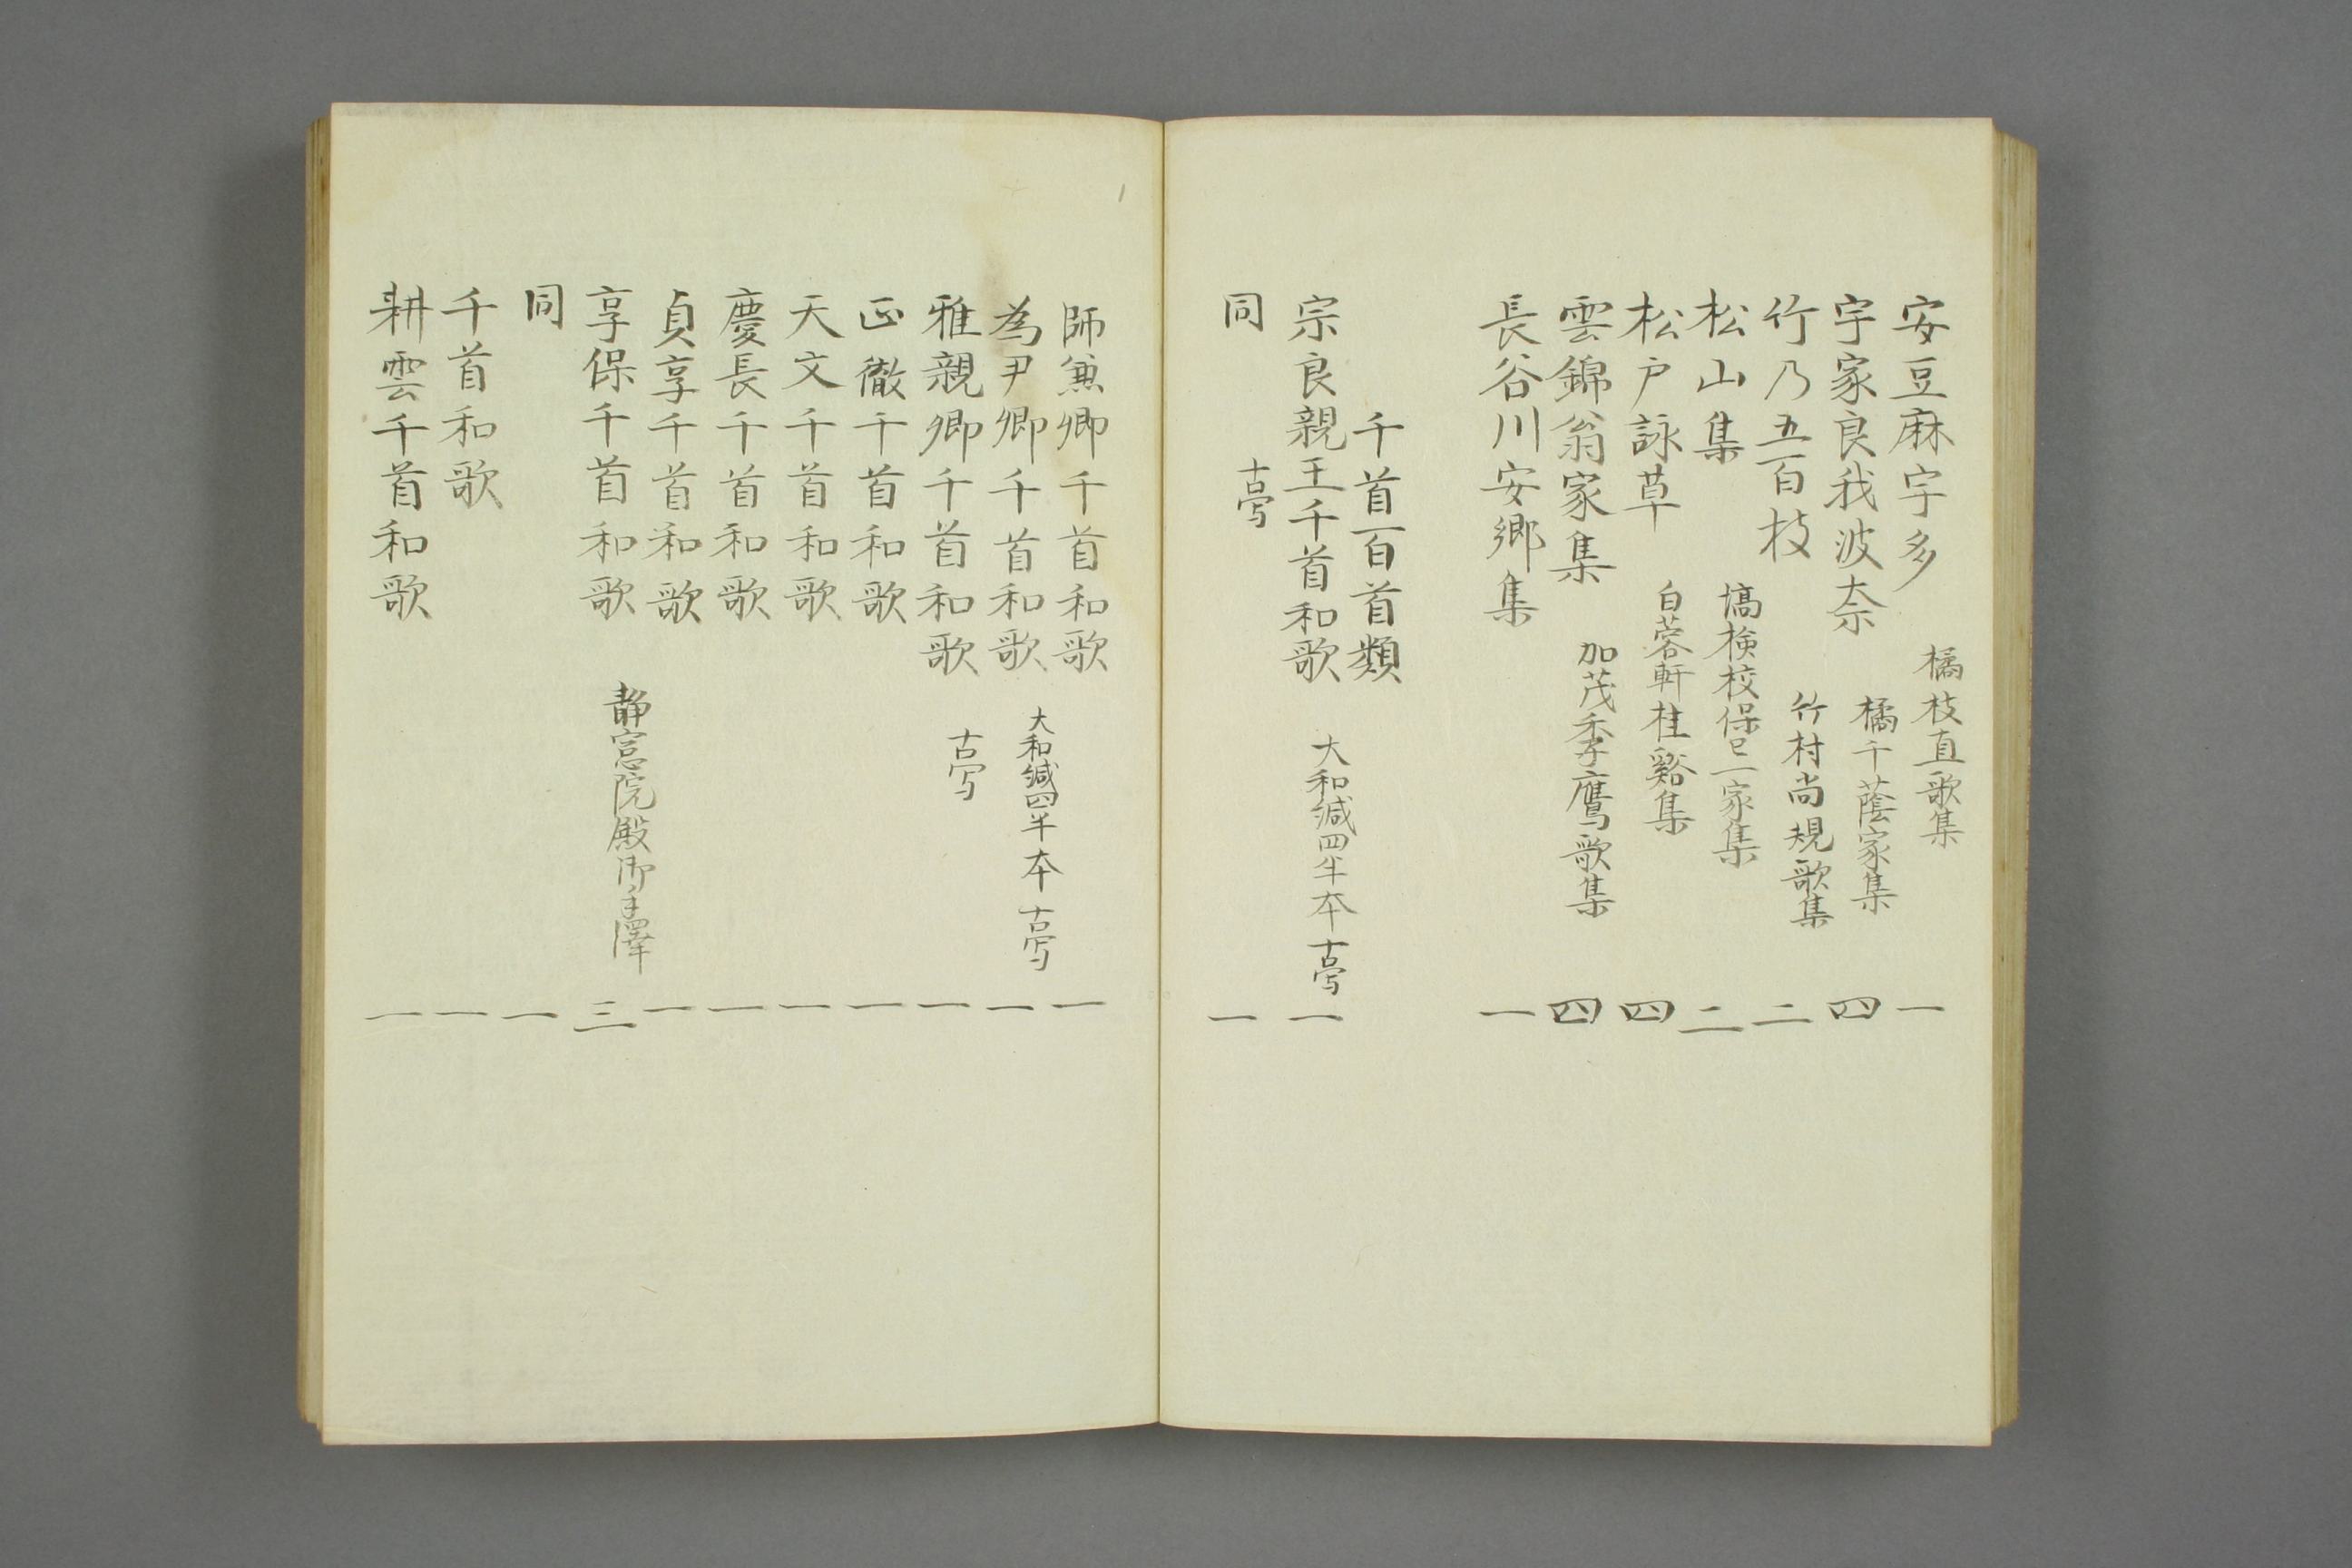 安豆麻宇多 橘枝直歌集 一
宇家良我波奈 橘千蔭家集 四
竹乃五百枝 竹村尚規歌集 二
松山集 塙検校保己一家集 二
松戸詠草 白蓉軒桂谿集 四
雲錦翁家集 加茂季鷹歌集 四
長谷川安郷集 一
千首百首類
宗良親王千首和歌 大和綴四半本 古写 一
同 古写 一
師兼卿千首和歌 一
為尹卿千首和歌 大和綴四半本 古写 一
雅親卿千首和歌 古写 一
正徹千首和歌 一
天文千首和歌 一
慶長千首和歌 一
貞享千首和歌 一
享保千首和歌 静寛院殿御手澤 三
同 一
千首和歌 一
耕雲千首和歌 一